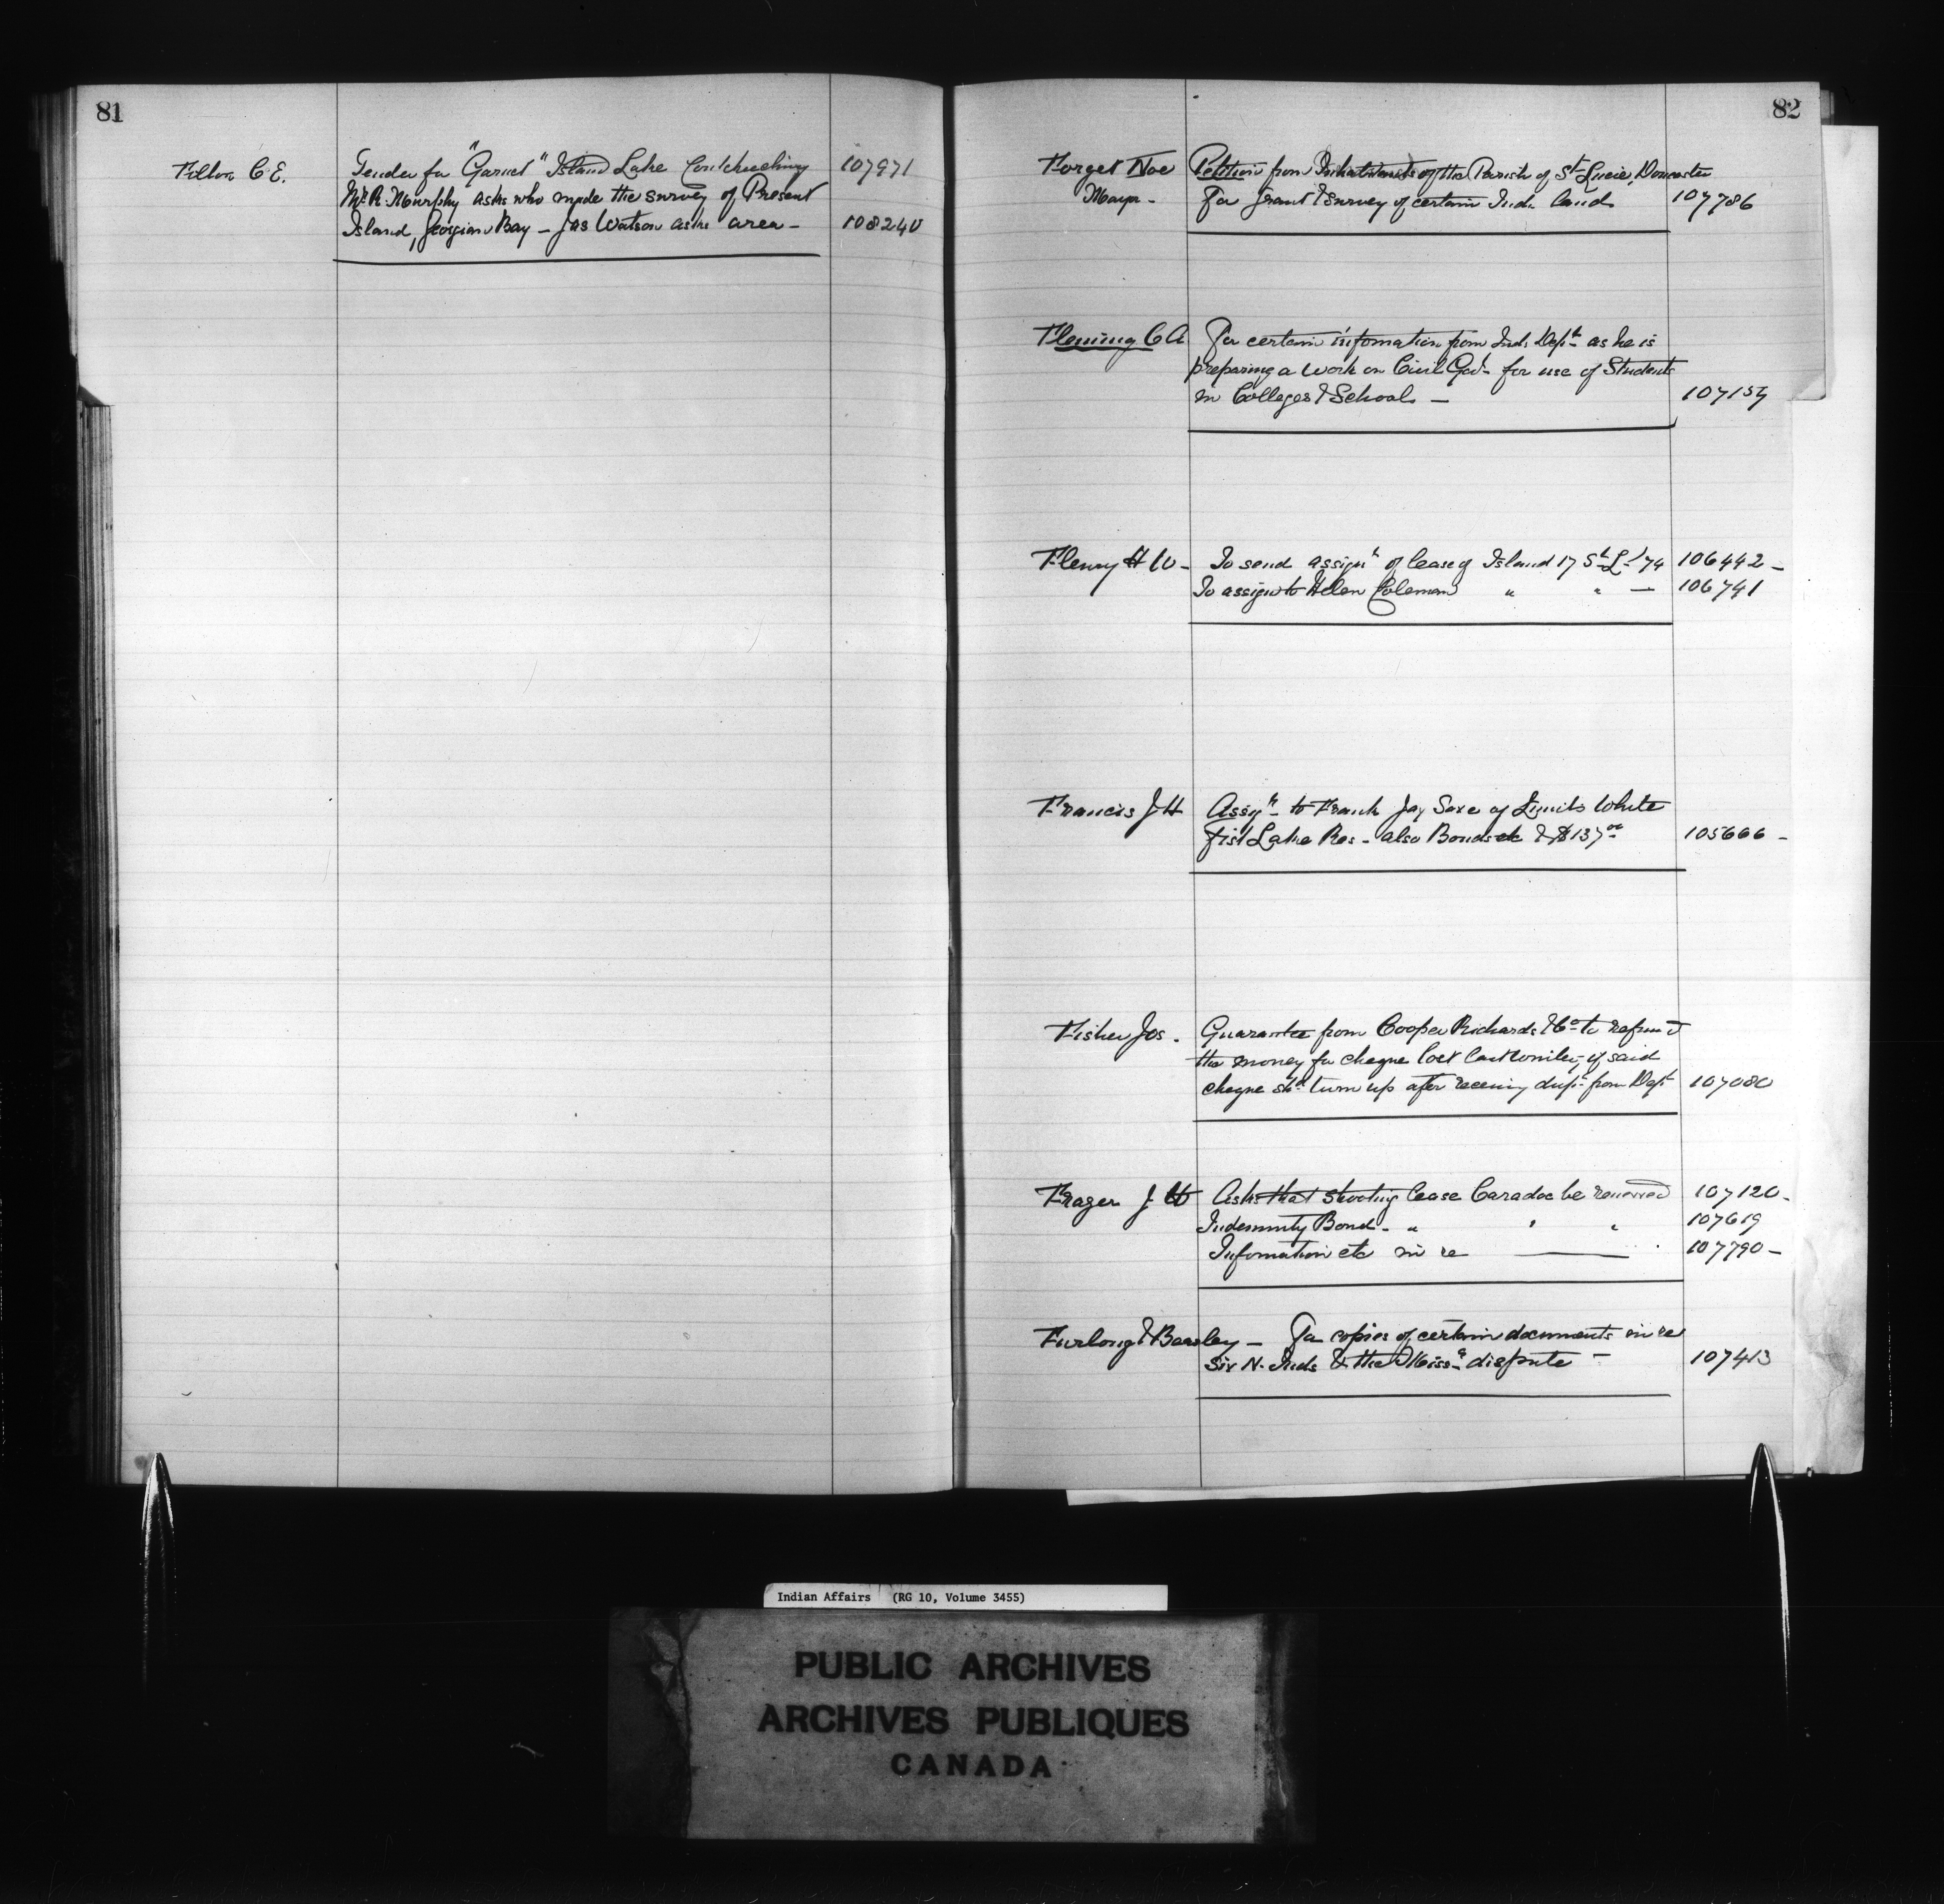 81
Fitton C. E. Tender for "Garnet" Island Lake Couchiching 107971
Mr. R. Murphy asks who made the survey of Present
Island, Georgian Bay – Jas Watson asks area – 108240
82
Forget Noe Petition from Inhabitants of the Parish of St Lucie, Doncaster
Mayor - For grant & survey of certain Ind. lands 107786
Fleming C A For certain information from Ind. Dept as he is
preparing a work on Civil Govt for use of Students
in Colleges & Schools – 107157
Fleury H W - To send assignt of lease of Island 17 St L / 74 106442 -
To assign to Helen Coleman " " — 106741
Francis J H Assignt to Frank Jay Saxe of Limits White
Fish Lake Res - also Bonds etc & $137 00 105666 -
Fisher Jos. Guarantee from Cooper Richards & Co to refund
the money for cheque lost if said
cheque shd turn up after receiving dupt from Dept 107080
Frazer J W Asks that shooting lease Caradoc be renewed 107120 -
Indemnity Bond - " " " 107619
Information etc in re —— 107790 -
Furlong & Beasley — For copies of certain documents in re
Six N. Inds & the Missa dispute – 107413
Indian Affairs (RG 10, Volume 3455)
PUBLIC ARCHIVES
ARCHIVES PUBLIQUES
CANADA